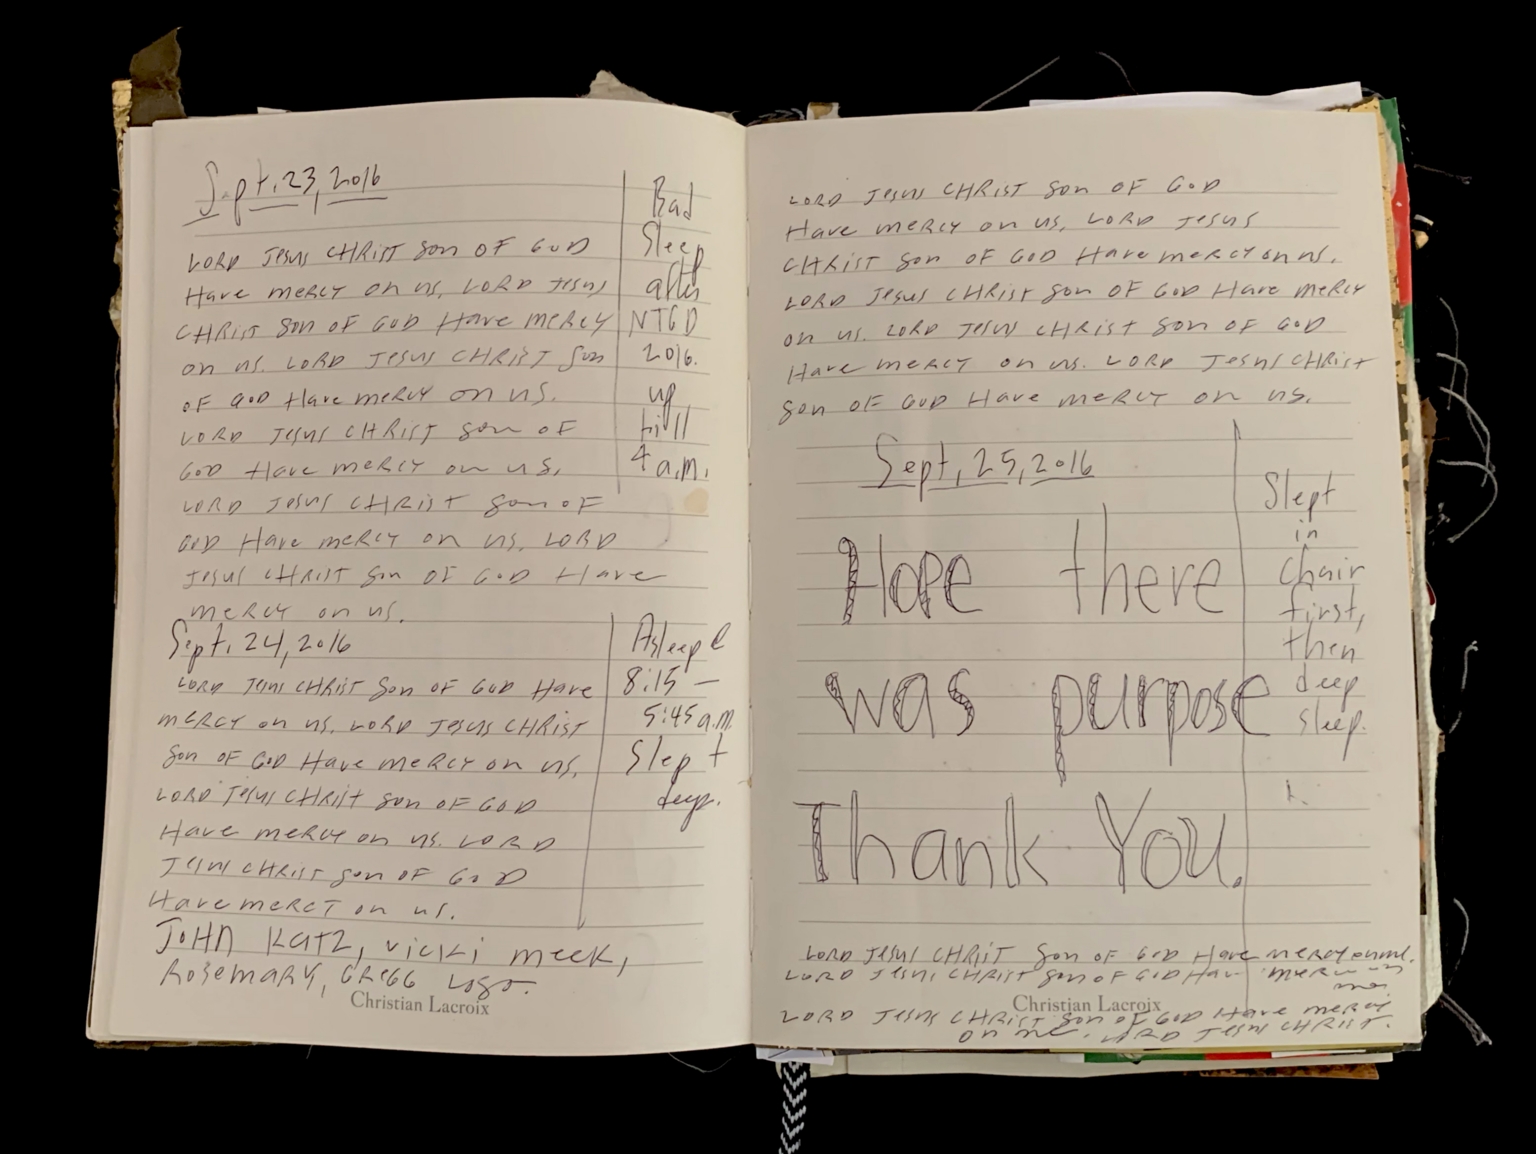 Sept. 23, 2016
LORD JESUS CHRIST Son OF GOD
Have mercy on us. LORD JESUS
CHRIST Son OF GOD Have mercy
on us. LORD JESUS CHRIST Son
OF GOD Have mercy on us.
LORD JESUS CHRIST Son OF
GOD Have mercy on us.
LORD JESUS CHRIST Son OF
GOD Have mercy on us. LORD
JESUS CHRIST Son OF GOD Have
mercy on us.
Bad
Sleep
after
NTGD
2016.
up
till
4 a.m.
Sept. 24, 2016
LORD JESUS CHRIST Son OF GOD Have
mercy on us. LORD JESUS CHRIST
Son OF GOD Have mercy on us.
LORD JESUS CHRIST Son OF GOD
Have mercy on us. LORD
JESUS CHRIST Son OF GOD
Have mercy on us.
Asleep @
8:15 –
5:45 a.m.
Slept
deep.
JOHN KATZ, VICKI meek,
Rosemary, GREGG
Christian Lacroix
LORD JESUS CHRIST Son OF GOD
Have mercy on us. LORD JESUS
CHRIST Son OF GOD Have mercy on us.
LORD JESUS CHRIST Son OF GOD Have mercy
on us. LORD JESUS CHRIST Son OF GOD
Have mercy on us. LORD JESUS CHRIST
Son OF GOD Have mercy on us.
Sept. 25, 2016
Hope there
was purpose
Thank You.
Slept
in
chair
first,
then
deep
sleep.
LORD JESUS CHRIST Son OF GOD Have mercy on me.
LORD JESUS CHRIST Son OF GOD Have mercy on
me.
Christian Lacroix
LORD JESUS CHRIST Son OF GOD Have mercy
on me. LORD JESUS CHRIST.